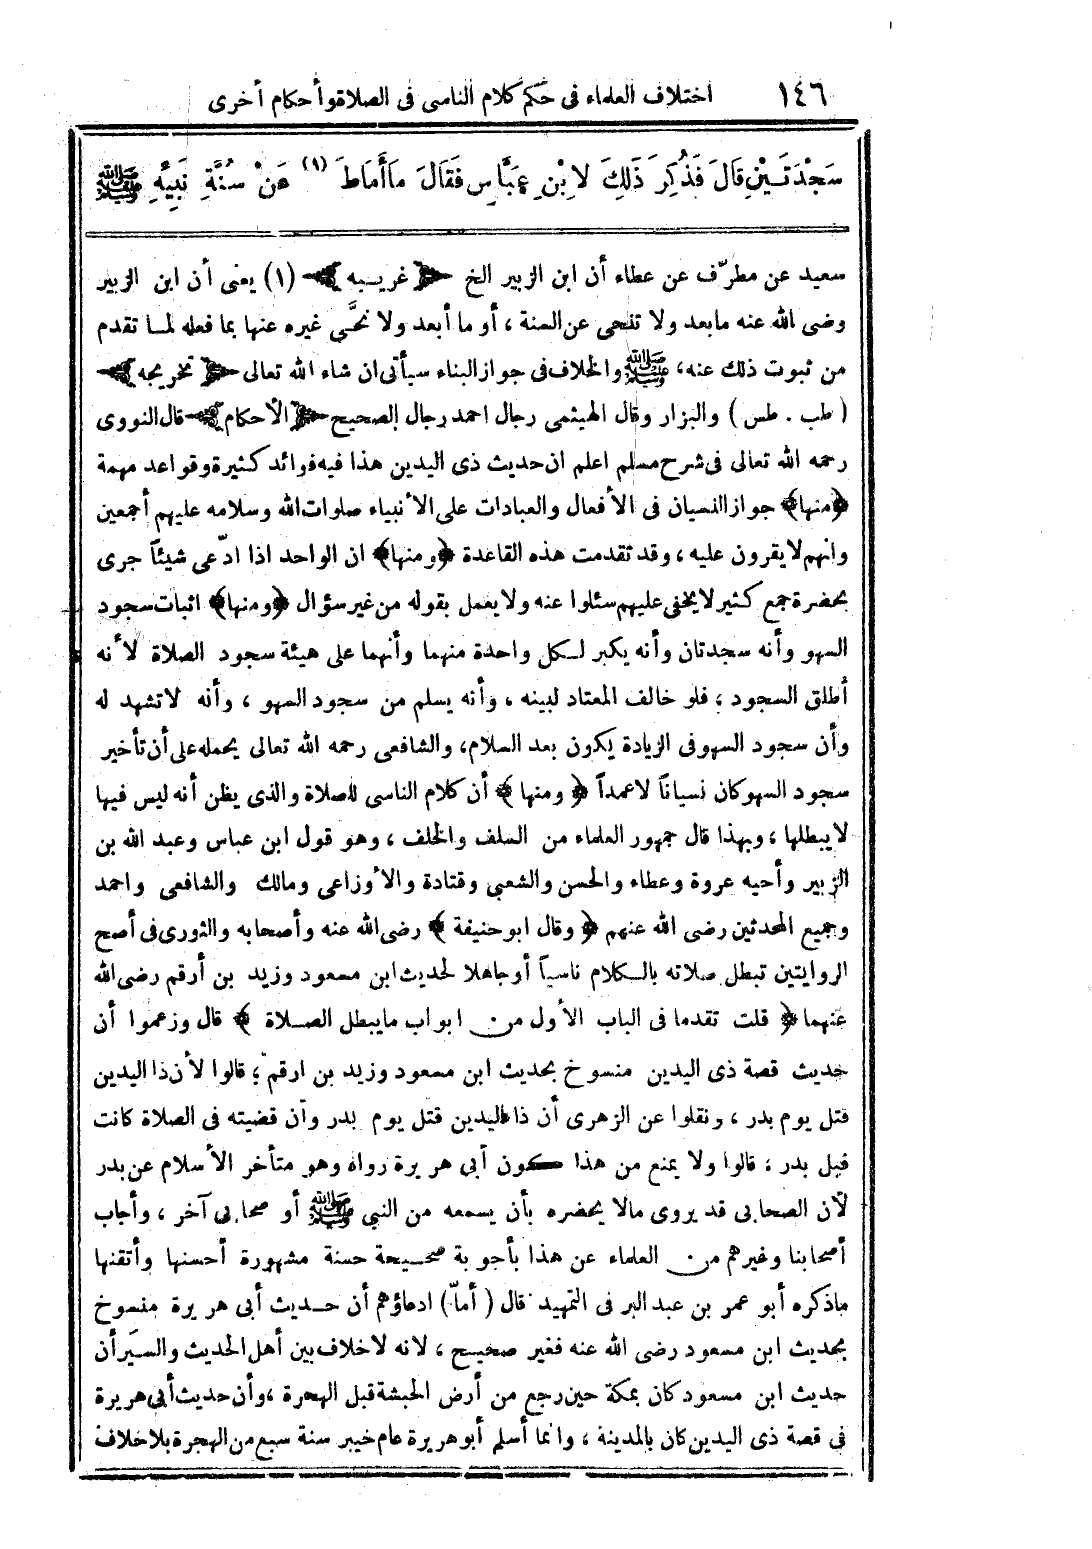 ١٤٦ اختلاف العلماء فى حكم كلام الناسى فى الصلاة وأحكام أخرى
سَجْدَتَيْنِ قَالَ فَذُكِرَ ذَلِكَ لِابْنِ عَبَّاسٍ فَقَالَ مَا أَمَاطَ (١) عَنْ سُنَّةِ نَبِيِّهِ ﷺ
سعيد عن مطرّف عن عطاء أن ابن الزبير الخ ﴿غريبه﴾ (١) يعنى أن ابن الزبير
رضى الله عنه ما بعد ولا تنحى عن السنة ، أو ما أبعد ولا نحَّى غيره عنها بما فعله لما تقدم
من ثبوت ذلك عنه، ﷺ والخلاف فى جواز البناء سيأتى ان شاء الله تعالى ﴿تخريجه﴾
( طب . طس ) والبزار وقال الهيثمى رجال احمد رجال الصحيح ﴿الأحكام﴾ قال النووى
رحمه الله تعالى فى شرح مسلم اعلم ان حديث ذى اليدين هذا فيه فوائد كثيرة وقواعد مهمة
﴿منها﴾ جواز النسيان فى الأفعال والعبادات على الأنبياء صلوات الله وسلامه عليهم أجمعين
وانهم لا يقرون عليه ، وقد تقدمت هذه القاعدة ﴿ومنها﴾ ان الواحد اذا ادّعى شيئاً جرى
بحضرة جمع كثير لا يخفى عليهم سئلوا عنه ولا يعمل بقوله من غير سؤال ﴿ومنها﴾ اثبات سجود
السهو وأنه سجدتان وأنه يكبر لكل واحدة منهما وأنهما على هيئة سجود الصلاة لأنه
أطلق السجود ؛ فلو خالف المعتاد لبينه ، وأنه يسلم من سجود السهو ، وأنه لا تشهد له
وأن سجود السهو فى الزيادة يكون بعد السلام، والشافعى رحمه الله تعالى يحمله على أن تأخير
سجود السهو كان نسياناً لا عمداً ﴿ ومنها ﴾ أن كلام الناسى للصلاة والذى يظن أنه ليس فيها
لا يبطلها ، وبهذا قال جمهور العلماء من السلف والخلف ، وهو قول ابن عباس وعبد الله بن
الزبير وأخيه عروة وعطاء والحسن والشعبى وقتادة والأوزاعى ومالك والشافعى واحمد
وجميع المحدثين رضى الله عنهم ﴿ وقال ابو حنيفة ﴾ رضى الله عنه وأصحابه والثورى فى أصح
الروايتين تبطل صلاته بالكلام ناسياً أو جاهلا لحديث ابن مسعود وزيد بن أرقم رضى الله
عنهما ﴿ قلت تقدما فى الباب الأول من ابواب ما يبطل الصلاة ﴾ قال وزعموا أن
حديث قصة ذى اليدين منسوخ بحديث ابن مسعود وزيد بن ارقم ؛ قالوا لأن ذا اليدين
قتل يوم بدر ، ونقلوا عن الزهرى أن ذا اليدين قتل يوم بدر وأن قضيته فى الصلاة كانت
قبل بدر ؛ قالوا ولا يمنع من هذا كون أبى هريرة رواه وهو متأخر الأسلام عن بدر
لأن الصحابى قد يروى مالا يحضره بأن يسمعه من النبي ﷺ أو صحابى آخر ، وأجاب
أصحابنا وغيرهم من العلماء عن هذا بأجوبة صحيحة حسنة مشهورة أحسنها وأتقنها
ماذكره أبو عمر بن عبد البر فى التمهيد قال ( أماّ ) ادعاؤهم أن حديث أبى هريرة منسوخ
بحديث ابن مسعود رضى الله عنه فغير صحيح ، لانه لا خلاف بين أهل الحديث والسيَر أن
حديث ابن مسعود كان بمكة حين رجع من أرض الحبشة قبل الهجرة ، وأن حديث أبى هريرة
فى قصة ذى اليدين كان بالمدينة ، وانما أسلم أبو هريرة عام خيبر سنة سبع من الهجرة بلا خلاف